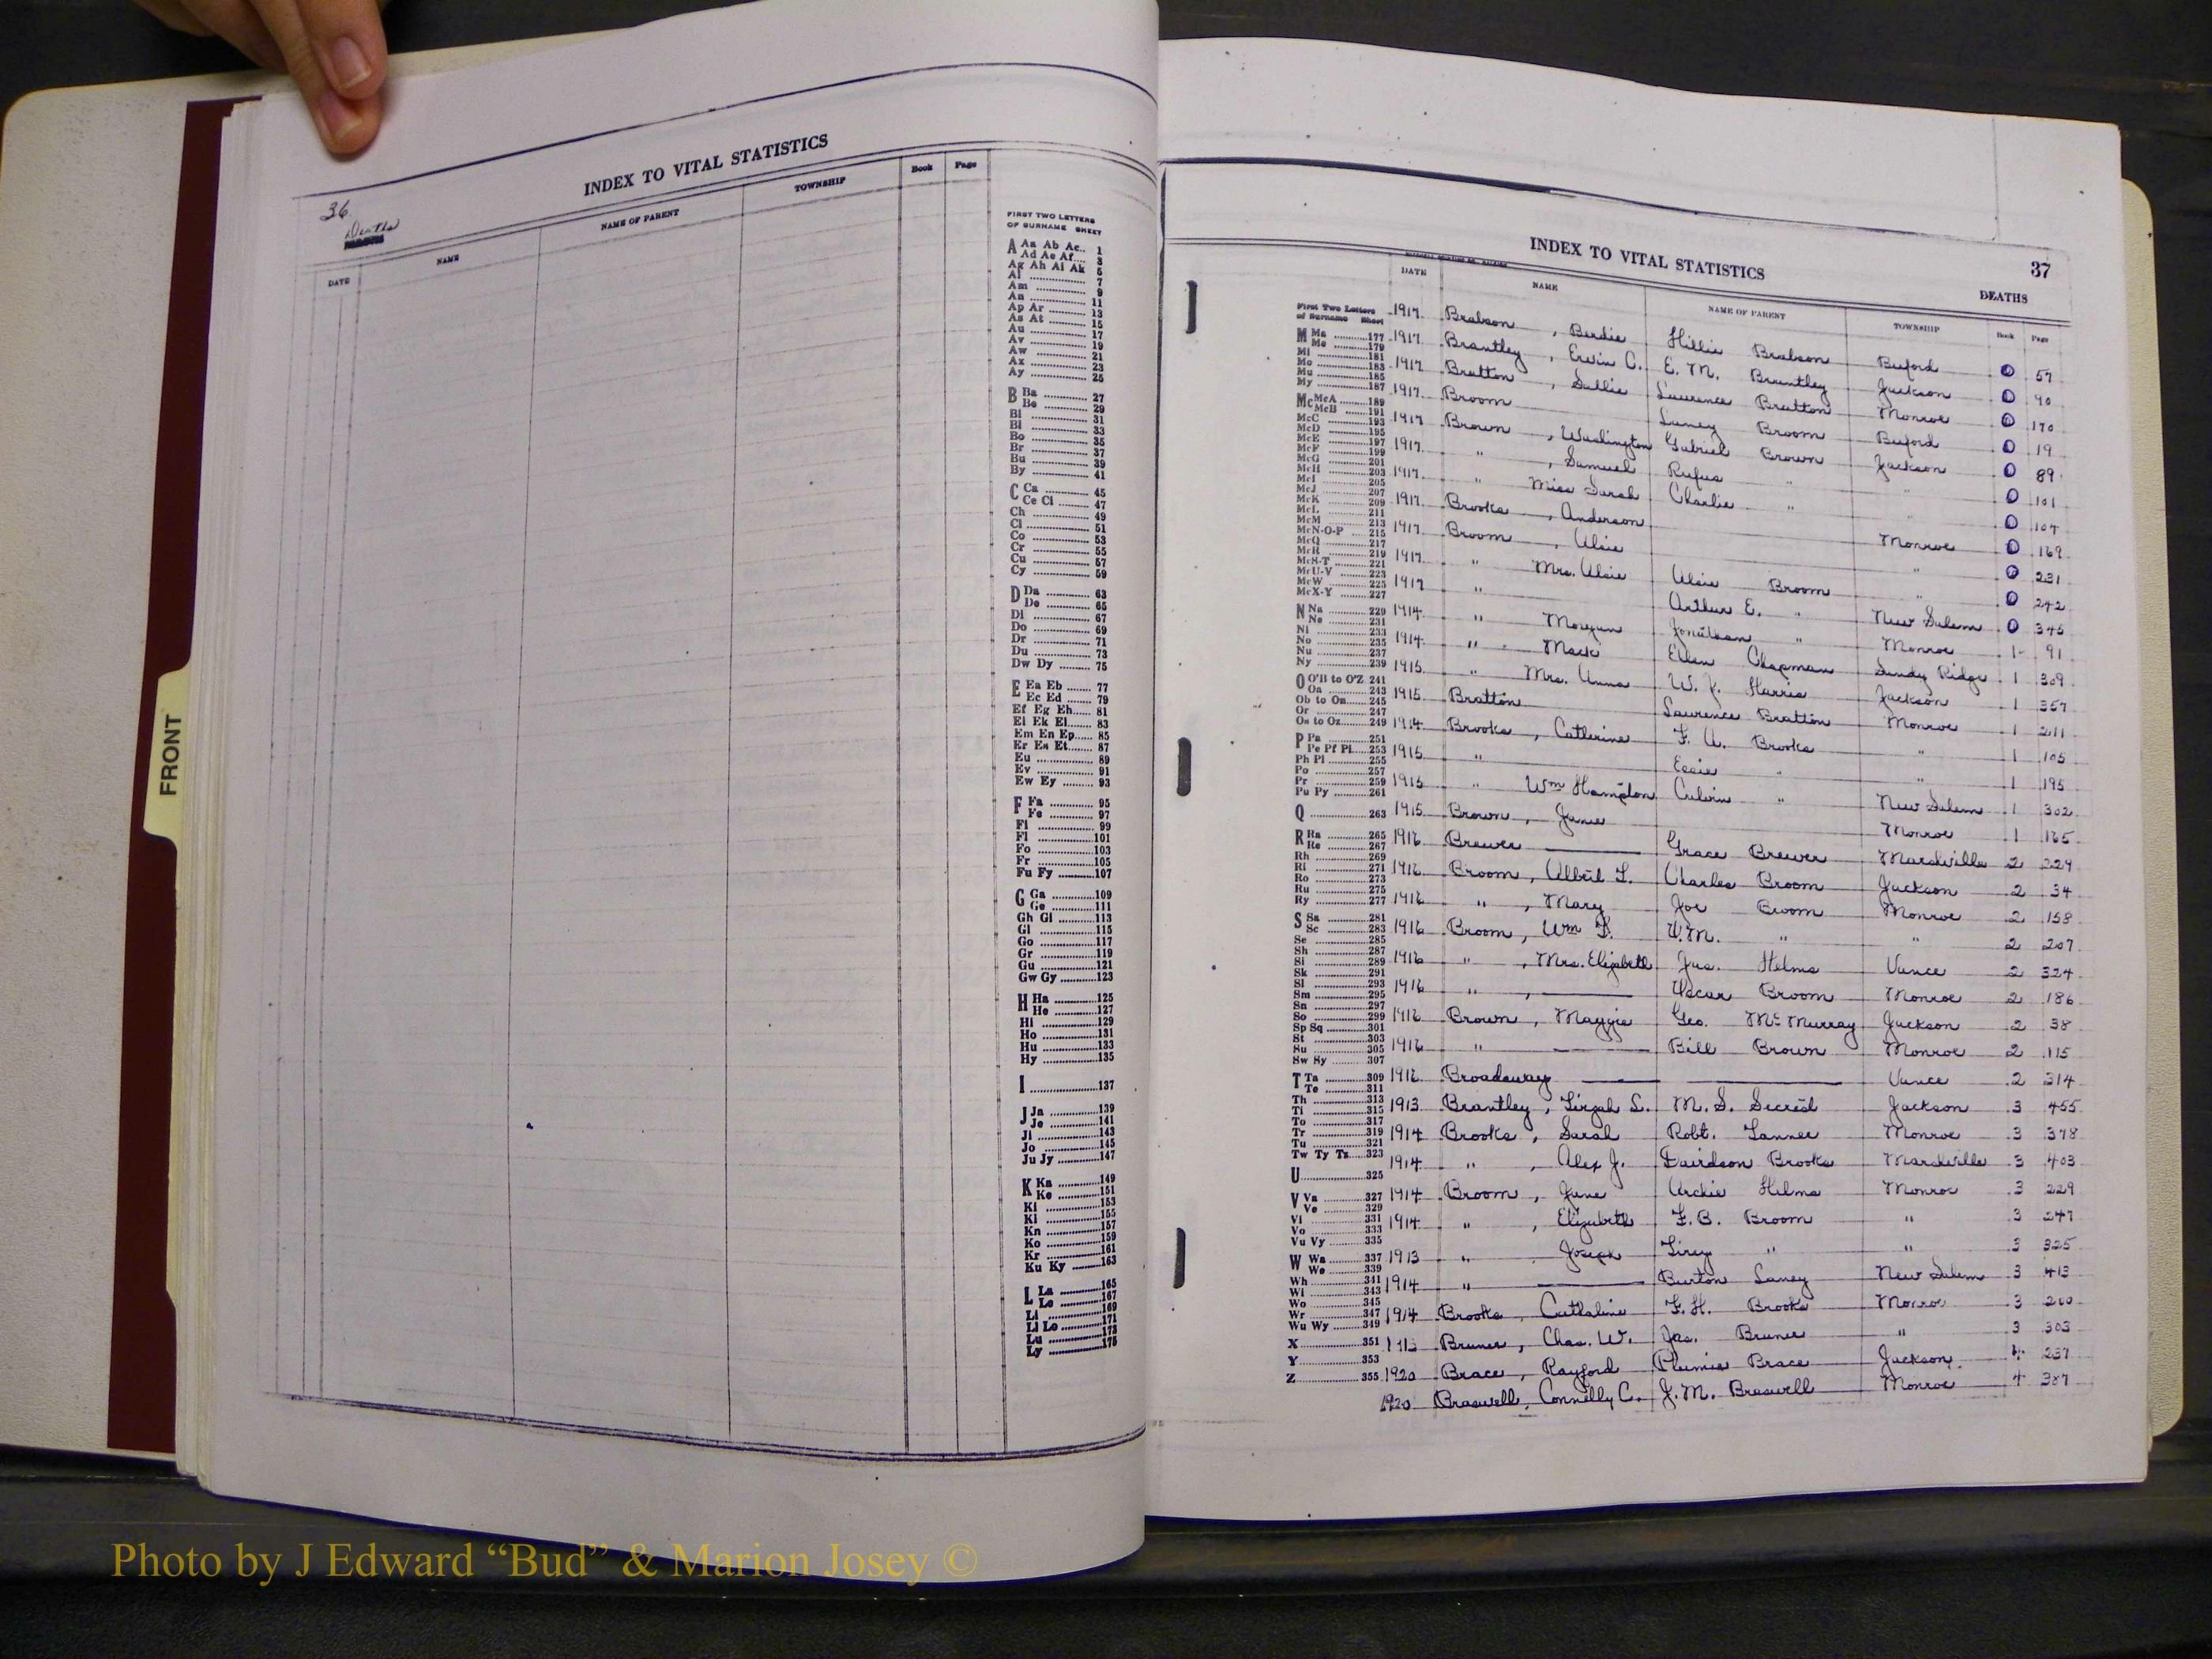 FRONT
36
Deaths
INDEX TO VITAL STATISTICS
DATE NAME NAME OF PARENT TOWNSHIP Book Page
FIRST TWO LETTERS
OF SURNAME SHEET
A Aa Ab Ac.. 1
Ad Ae Af.... 3
Ag Ah Ai Ak 5
Al 7
Am 9
An 11
Ap Ar 13
As At 15
Au 17
Av 19
Aw 21
Ax 23
Ay 25
B Ba 27
Be 29
Bi 31
Bl 33
Bo 35
Br 37
Bu 39
By 41
C Ca 45
Ce Ci 47
Ch 49
Cl 51
Co 53
Cr 55
Cu 57
Cy 59
D Da 63
De 65
Di 67
Do 69
Dr 71
Du 73
Dw Dy 75
E Ea Eb 77
Ec Ed 79
Ef Eg Eh 81
Ei Ek El 83
Em En Ep 85
Er Es Et 87
Eu 89
Ev 91
Ew Ey 93
F Fa 95
Fe 97
Fi 99
Fl 101
Fo 103
Fr 105
Fu Fy 107
G Ga 109
Ge 111
Gh Gi 113
Gl 115
Go 117
Gr 119
Gu 121
Gw Gy 123
H Ha 125
He 127
Hi 129
Ho 131
Hu 133
Hy 135
I 137
J Ja 139
Je 141
Ji 143
Jo 145
Ju Jy 147
K Ka 149
Ke 151
Ki 153
Kl 155
Kn 157
Ko 159
Kr 161
Ku Ky 163
L La 165
Le 167
Li 169
Ll Lo 171
Lu 173
Ly 175
INDEX TO VITAL STATISTICS 37
DEATHS
DATE NAME NAME OF PARENT TOWNSHIP Book Page
First Two Letters
of Surname Sheet
M Ma 177
Me 179
Mi 181
Mo 183
Mu 185
My 187
Mc McA 189
McB 191
McC 193
McD 195
McE 197
McF 199
McG 201
McH 203
McI 205
McJ 207
McK 209
McL 211
McM 213
McN-O-P 215
McQ 217
McR 219
McS-T 221
McU-V 223
McW 225
McX-Y 227
N Na 229
Ne 231
Ni 233
No 235
Nu 237
Ny 239
O O'B to O'Z 241
Oa 243
Ob to On 245
Or 247
Os to Oz 249
P Pa 251
Pe Pf Pl 253
Ph Pi 255
Po 257
Pr 259
Pu Py 261
Q 263
R Ra 265
Re 267
Rh 269
Ri 271
Ro 273
Ru 275
Ry 277
S Sa 281
Sc 283
Se 285
Sh 287
Si 289
Sk 291
Sl 293
Sm 295
Sn 297
So 299
Sp Sq 301
St 303
Su 305
Sw Sy 307
T Ta 309
Te 311
Th 313
Ti 315
To 317
Tr 319
Tu 321
Tw Ty Tz 323
U 325
V Va 327
Ve 329
Vi 331
Vo 333
Vu Vy 335
W Wa 337
We 339
Wh 341
Wi 343
Wo 345
Wr 347
Wu Wy 349
X 351
Y 353
Z 355
1917 Brabson, Birdie Hillie Brabson Buford 0 57
1917 Brantley, Ervin C. E. M. Brantley Jackson 0 40
1917 Bratton, Sallie Laurence Bratton Monroe 0 170
1917 Broom Laney Broom Buford 0 19
1917 Brown, Washington Gabriel Brown Jackson 0 89
1917 " , Samuel Rufus " " 0 101
1917 " Miss Sarah Charlie " " 0 104
1917 Brooks, Anderson Monroe 0 169
1917 Broom, Alsie " 0 231
1917 " Mrs. Alsie Alsie Broom " 0 242
1917 " Arthur E. " New Salem 0 345
1914 " Morgan Jonathan " Monroe 1 91
1914 " Mack Ellen Chapman Sandy Ridge 1 309
1915 " Mrs. Anna W. J. Harris Jackson 1 357
1915 Bratton Laurence Bratton Monroe 1 211
1914 Brooks, Catherine F. A. Brooks " 1 105
1915 " Essie " " 1 195
1915 " Wm Hampton Calvin " New Salem 1 302
1915 Brown, Janie Monroe 1 165
1916 Brewer Grace Brewer Marshville 2 229
1916 Broom, Albert L. Charles Broom Jackson 2 34
1916 " , Mary Joe Broom Monroe 2 158
1916 Broom, Wm F. W.M. " " 2 207
1916 " , Mrs. Elizabeth Jas. Helms Vance 2 324
1916 " , Oscar Broom Monroe 2 186
1916 Brown, Maggie Geo. McMurray Jackson 2 38
1916 " Bill Brown Monroe 2 115
1916 Broadaway Vance 2 314
1913 Brantley, Tirzah S. M. S. Secrest Jackson 3 455
1914 Brooks, Sarah Robt. Tanner Monroe 3 378
1914 " , Alex J. Davidson Brooks Marshville 3 403
1914 Broom, June Archie Helms Monroe 3 229
1914 " , Elizabeth F. B. Broom " 3 247
1913 " Joseph Tirey " " 3 325
1914 " Burton Laney New Salem 3 413
1914 Brooks, Cathaline F. H. Brooks Monroe 3 200
1913 Bruner, Chas. W. Jas. Bruner " 3 303
1920 Brace, Rayford Plumie Brace Jackson 4 237
1920 Braswell, Connelly C. J. M. Braswell Monroe 4 387
Photo by J Edward “Bud” & Marion Josey ©